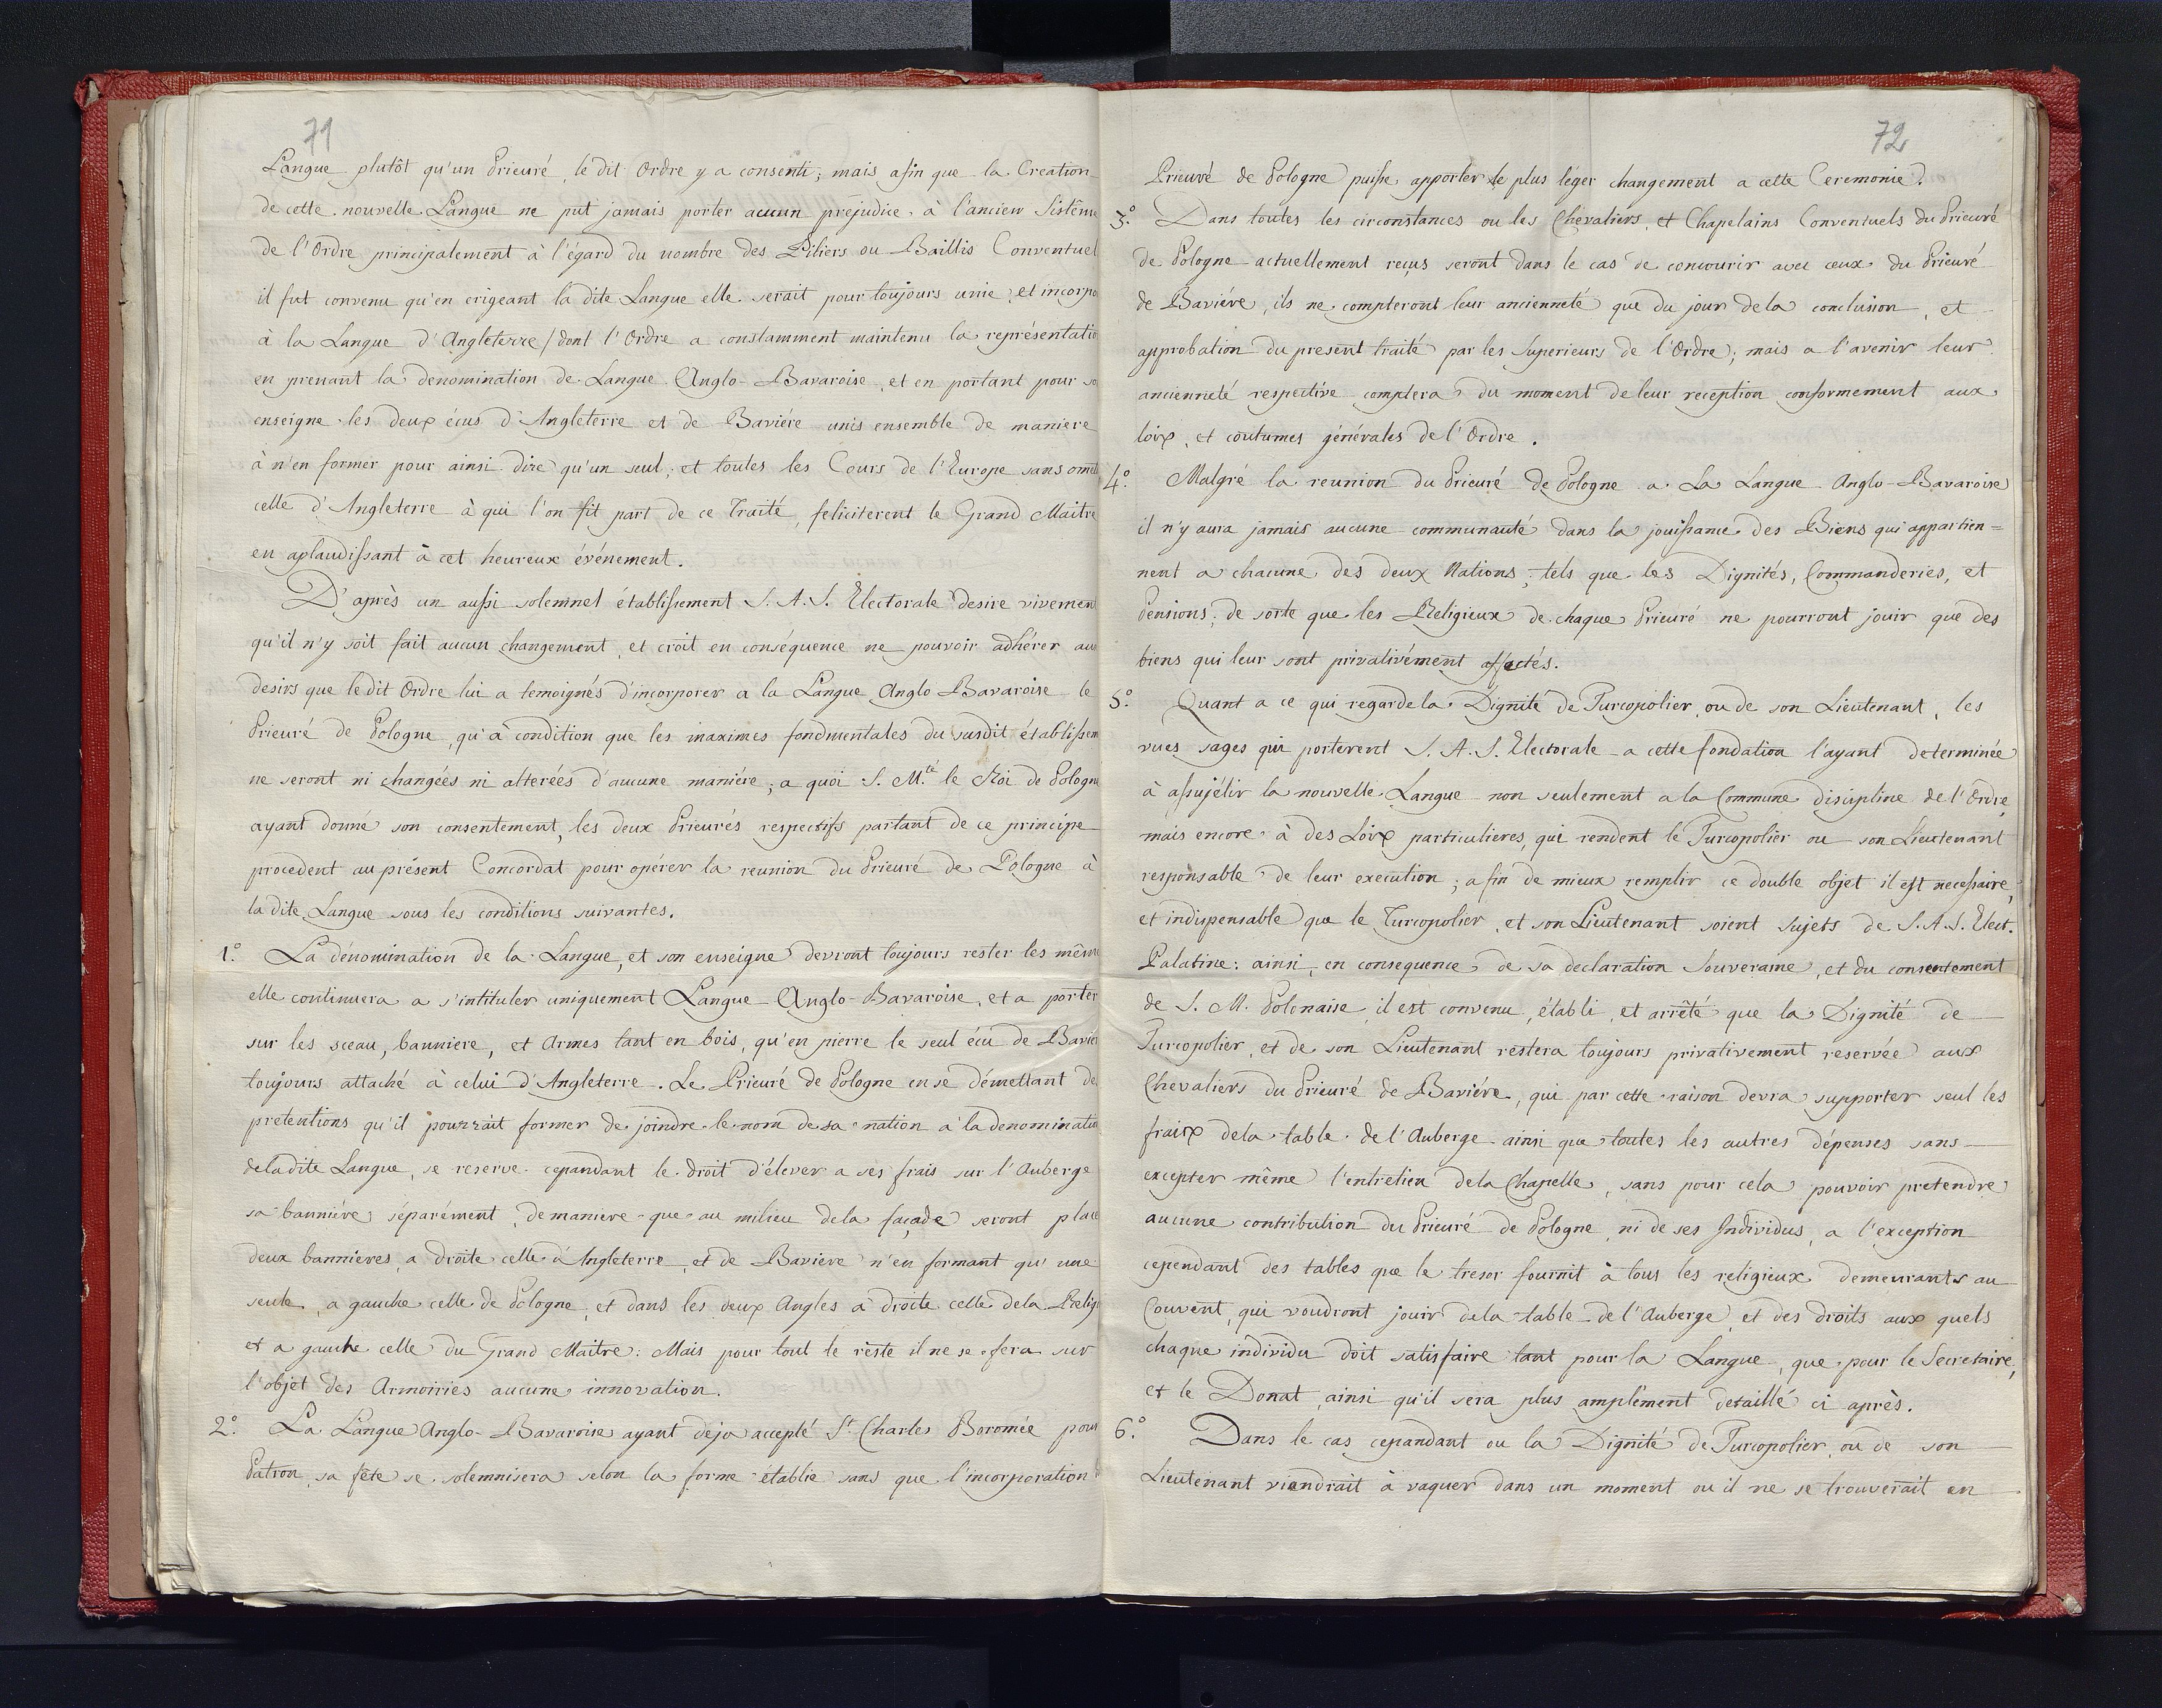 71
Langue plutôt qu'un Prieuré, le dit Ordre y a consenti; mais afin que la Creation
de cette nouvelle Langue ne put jamais porter aucun prejudice à l'ancien Sistême
de l'Ordre principalement à l'égard du nombre des Piliers ou Baillis Conventuel
il fut convenu qu'en erigeant la dite Langue elle serait pour toujours unie, et incorpo
à la Langue d'Angleterre / dont l'Ordre a constamment maintenu la représentatio
en prenant la denomination de Langue Anglo-Bavaroise, et en portant pour so
enseigne les deux écus d'Angleterre et de Baviére unis ensemble de maniere
à n'en former pour ainsi dire qu'un seul; et toutes les Cours de l'Europe sans omet
celle d'Angleterre à qui l'on fit part de ce Traité, feliciterent le Grand Maitre
en aplaudissant à cet heureux événement.
D'après un aussi solemnel établissement S. A. S. Electorale desire vivemen
qu'il n'y soit fait aucun changement, et croit en conséquence ne pouvoir adhérer au
desirs que le dit Ordre lui a temoignés d'incorporer a la Langue Anglo Bavaroise le
Prieuré de Pologne, qu'à condition que les maximes fondmentales du susdit établissem
ne seront ni changées ni alterées d'aucune maniére; a quoi S. M.té le Roi de Pologne
ayant donné son consentement, les deux Prieurés respectifs partant de ce principe
procedent au présent Concordat pour opérer la reunion du Prieuré de Pologne à
la dite Langue sous les conditions suivantes.
1.° La dénomination de la Langue, et son enseigne devront toujours rester les même
elle continuera a s'intituler uniquement Langue Anglo-Bavaroise, et a porter
sur les sceau, banniere, et Armes tant en bois, qu'en pierre le seul écu de Bavier
toujours attaché à celui d'Angleterre. Le Prieuré de Pologne en se démettant de
pretentions qu'il pourrait former de joindre le nom de sa nation à la denominatio
dela dite Langue, se reserve cepandant le droit d'élever a ses frais sur l'Auberge
sa banniére séparément, de maniere que au milieu dela façade seront place
deux bannieres, a droite celle d'Angleterre, et de Baviere n'en formant qu'une
seule, a gauche celle de Pologne, et dans les deux Angles à droite celle dela Relig
et a gauche celle du Grand Maitre: Mais pour tout le reste il ne se fera sur
l'objet des Armoiries aucune innovation.
2.° La Langue Anglo-Bavaroise ayant deja accepté St. Charles Boromée pour
Patron, sa fête se solemnisera selon la forme établie sans que l'incorporation
72
Prieuré de Pologne puisse apporter le plus léger changement a cette Ceremonie.
3.° Dans toutes les circonstances ou les Chevaliers, et Chapelains Conventuels du Prieuré
de Pologne actuellement reçus seront dans le cas de concourir avec ceux du Prieuré
de Baviére, ils ne compteront leur ancienneté que du jour dela conclusion, et
approbation du present traité par les Superieurs de l'Ordre; mais a l'avenir leur
ancienneté respective comptera du moment de leur reception conformement aux
loix, et coutumes générales de l'Ordre.
4.° Malgré la reunion du Prieuré de Pologne a La Langue Anglo-Bavaroise
il n'y aura jamais aucune communauté dans la jouissance des Biens qui appartien=
nent a chacune des deux Nations, tels que les Dignités, Commanderies, et
Pensions; de sorte que les Religieux de chaque Prieuré ne pourront jouir que des
biens qui leur sont privativément affectés.
5.° Quant a ce qui regarde la Dignité de Turcopolier, ou de son Lieutenant, les
vues sages qui porterent S. A. S. Electorale a cette fondation l'ayant determinée
à assujétir la nouvelle Langue non seulement a la Commune discipline de l'Ordre,
mais encore à des Loix particulieres, qui rendent le Turcopolier ou son Lieutenant
responsable de leur execution; afin de mieux remplir ce double objet il est necessaire,
et indispensable que le Turcopolier, et son Lieutenant soient sujets de S. A. S. Elect.
Palatine: ainsi, en consequence de sa declaration Souveraine, et du consentement
de S. M. Polonaise, il est convenu, établi, et arrêté que la Dignité de
Turcopolier, et de son Lieutenant restera toujours privativement reservée aux
Chevaliers du Prieuré de Baviére, qui par cette raison devra supporter seul les
fraix dela table de l'Auberge ainsi que toutes les autres dépenses sans
excepter même l'entretien dela Chapelle, sans pour cela pouvoir pretendre
aucune contribution du Prieuré de Pologne, ni de ses Individus, a l'exception
cependant des tables que le tresor fournit à tous les religieux demeurants au
Couvent, qui voudront jouir dela table de l'Auberge, et des droits aux quels
chaque individu doit satisfaire tant pour la Langue, que pour le Secretaire,
et le Donat, ainsi qu'il sera plus amplement detaillé ci après.
6.° Dans le cas cepandant ou la Dignité de Turcopolier, ou de son
Lieutenant viendrait à vaquer dans un moment ou il ne se trouverait en